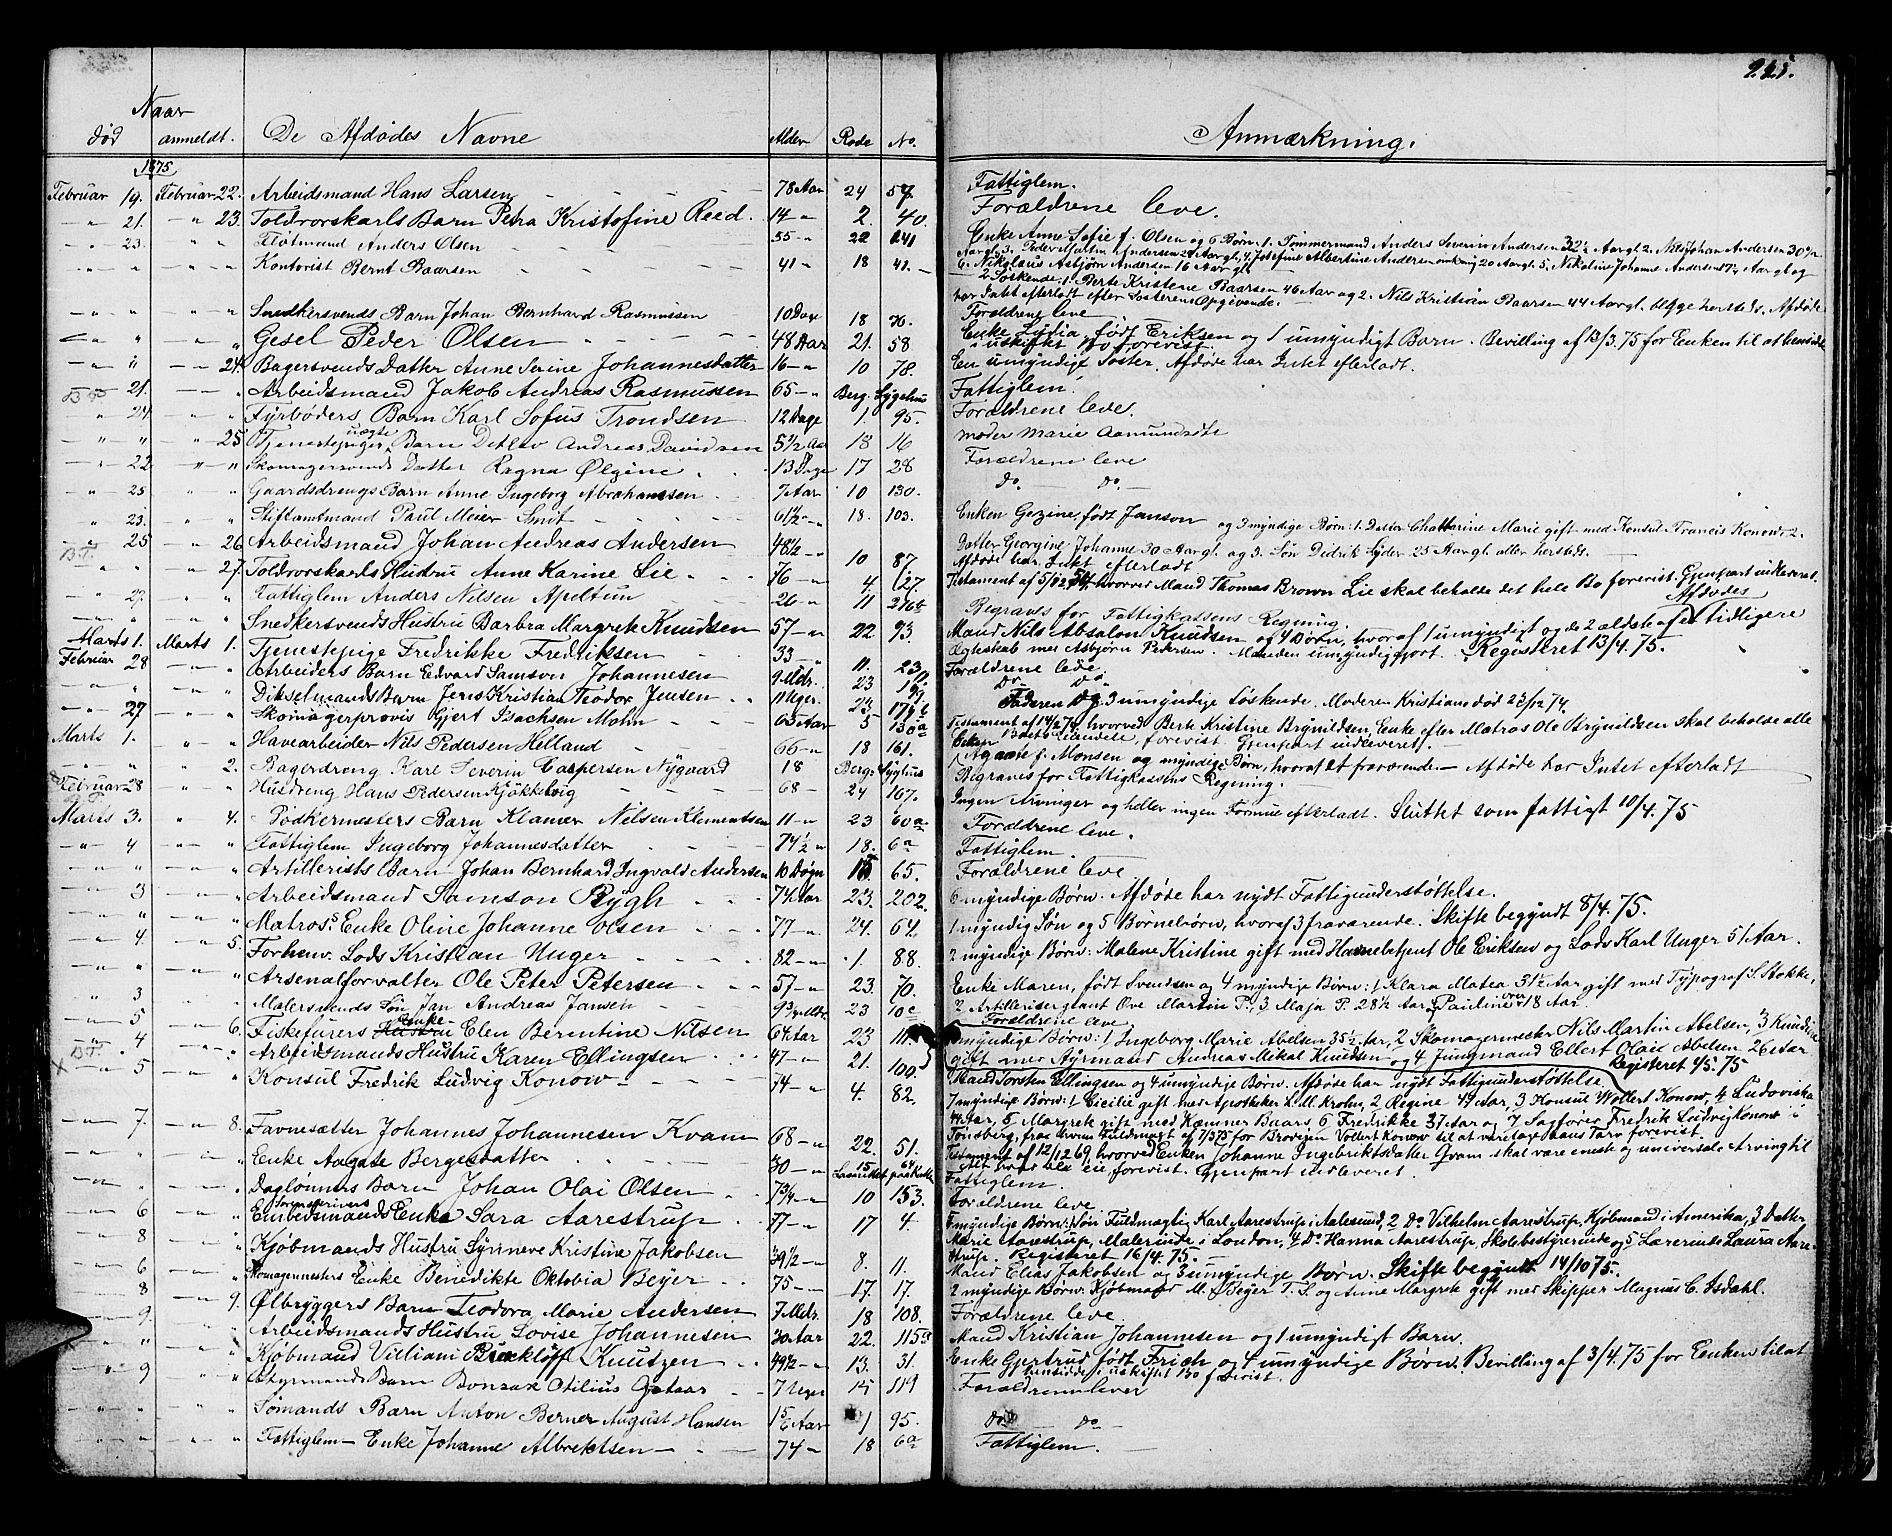 225.
Naar
død anmeldt. De Afdødes Navne Alder Rode No. Anmærkning.
1875
Februar 19. Februar 22. Arbeidsmand Hans Larsen 78 Aar 24 57. Fattiglem.
" 21. " 23. Toldvorskarls Barn Petra Kristofine Reed. 14 " 2. 40. Forældrene leve.
" 23. " " Fløtmand Anders Olsen 55 " 22 241 Enke Anne Sofie f. Olsen og 6 Børn: 1. Tømmermand Anders Severin Andersen 32½ Aar gl. 2. Nils Johan Andersen 30
" " " " Kontorist Bernt Baarsen 41 " 18 41.
6. Nikolaus Asbjørn Andersen 16 Aar gl.
2 Søskende: 1. Berte Kristene Baarsen 46 Aar og 2. Nils Kristian Baarsen 44 Aar gl. begge hersteds. Afdøde
har Intet efterladt efter Søsterens Opgivende.
" " " " Snedkersvends Barn Johan Bernhard Rasmussen 10 Dage 18 70. Forældrene leve
" " " " Gesel Peder Olsen 48 Aar 21. 58 Enke Lydia, født Eriksen og 1 umyndigt Barn. Bevilling af 13/3. 75 for Enken til at hensidde
i uskiftet Bo forevist.
" " " 24. Bagersvends Datter Anne Serine Johannesdatter 16 " 10 78. En umyndige Søster. Afdøde har Intet efterladt.
" 21. " " Arbeidsmand Jakob Andreas Rasmussen 65 " Berg. Sygehus Fattiglem.
" 24. " " Fyrbøders Barn Karl Sofus Trondsen 12 Dage 1. 95. Forældrene leve.
" " " 25 Tjenestepiges uægte Barn Detlev Andreas Davidsen 5½ Aar 18 16 Moder Marie Aamundsdtr
" 22 " " Skomagersvends Datter Ragna Olgine 13 Dage 17 28 Forældrene leve
" 25 " " Gaardsdrengs Barn Anne Ingeborg Abrahamsen 7 Aar 10 130. do. do.
" 23. " " Stiftamtmand Paul Meier Smit 61½ " 18. 103. Enken Gezine, født Janson og 3 myndige Børn: 1. Datter Chattarine Marie gift med Konsul Francis Konow, 2.
Datter Georgine Johanne 30 Aar gl. og 3. Søn Didrik 25 Aar gl. alle herstede.
" 25 " 26 Arbeidsmand Johan Andreas Andersen 48½ " 10 87 Afdøde har Intet efterladt
" " " 27. Toldvorskarls Hustru Anne Karine Lie 76 " 4 127. Testament af hvorved Mand Thomas Brown Lie skal beholde det hele Bo forevist. Gjenpart indleveret.
" 27. " " Fattiglem Anders Nilsen Apeltun 26 " 11 Begraves for Fattigkassens Regning.
" " " " Snedkersvends Hustru Barbra Margrete Knudsen 57 " 22 93 Mand Nils Absalon Knudsen og 4 Børn, hvoraf 1 umyndigt og de 2 ældste af Afdødes tidligere
Ægteskab med Asbjørn Pedersen. Manden umyndiggjort. Registeret 13/4. 75.
Marts 1. Marts 1. Tjenestepige Fredrikke Fredriksen 33 " 11. 23
Februar 28 " " Arbeiders Barn Edvard Samson Johannesen 9 Mdr. 23 Forældrene leve
" " " " Dikselmands Barn Jens Kristian Teodor Jensen 11 Uger 23 Do Do
" 27 " " Skomagerprovis Gjert Isachsen Mohn 65 Aar 5 130 Faderen og 3 umyndige Søskende. Moderen Kristiane død
Marts 1. " " Havearbeider Nils Pedersen Helland 66 " 18 161. Testament af hvorved Berte Kristine Brynildsen, Enke efter Matros Ole Brynildsen skal beholde alle
forevist. Gjenpart indleveret.
" " " 2. Bagerdreng Karl Severin Caspersen Nygaard 18 Berg. Sygehus Agaate f. Monsen og myndige Børn, hvoraf 1 fraværende. Afdøde har Intet efterladt
Februar 28 " " Husdreng Hans Pedersen Kjøkkelvig 68 " 24 167. Begraves for Fattigkassens Regning.
Ingen Arvinger og heller ingen Formue efterladt. Sluttet som fattigt 10/4. 75
Marts 3. " 4. Pødkermesters Barn Klamer Nilsen Klementsen 11 " 23 60a Forældrene leve.
" 4 " " Fattiglem Ingeborg Johannesdatter 74½ " 18. 6a Fattiglem.
" " " " Artillerists Barn Johan Bernhard Ingvald Andersen 10 Døgn 15 65. Forældrene leve
" 3 " " Arbeidsmand Samson Rygh 74 Aar 23. 202. 6 myndige Børn. Afdøde har nydt Fattigunderstøttelse.
" " " " Matros. Enke Oline Johanne Olsen 77 " 24. 64. 1 myndig Søn og 5 Børnebørn, hvoraf 3 fraværende. Skifte begyndt 8/4. 75.
" 4. " 5. Forhenv. Lods Kristian Unger 82 " 1. 88. 2 myndige Børn: Malene Kristine gift med Havnebetjent Ole Eriksen og Lods Karl Unger 51 Aar.
" " " " Arsenalforvalter Ole Peter Petersen 57 " 23. 70. Enke Maren, født Svendsen og 4 myndige Børn: 1 Klara Matea 31½ Aar gift med Typograf S. Stokke,
2 Artilleriserjeant Ove Martin P., 3 Maja P. 28½ Aar, Pauline over 18 Aar.
" 3 " " Malersvends Søn Jan Andreas Jansen 9¾ Mdr. 23 10c Forældrene leve.
" 5 " 6. Fiskeførers Enke Elen Berentine Nilsen 64 Aar 23 myndige Børn: 1 Ingeborg Marie Abelsen 35½ Aar, 2 Skomagermester Nils Martin Abelsen, 3
gift med og 4. Jungmand Ellert Olai Abelsen 26 Aar
Registeret 4/5. 75
" 4 " " Arbeidsmands Hustru Karen Ellingsen 47 " 21. 100 Mand Torsten Ellingsen og 4 umyndige Børn. Afdøde har nydt Fattigunderstøttelse.
" 5 " " Konsul Fredrik Ludvig Konow 74 " 4. 82. 7 myndige Børn: 1 Cecilie gift med Apotheker L. M. Krohn, 2 Regine 47 Aar, 3 Konsul Wollert Konow, 4 Ludoviska
44 Aar, 5 Margrete gift med Kæmner Baars, 6 Fredrikke 37 Aar og 7 Sagfører Fredrik Ludvig Konow i
Tønsberg, fra hvem Fuldmagt af 7/3 75 for Brodren Vollert Konow til at varetage hans Tarv forevist.
" 7. " 8. Favnesætter Johannes Johannesen Kvam 68 " 22. 51. Testament af 12/12 69, hvorved Enken Johanne Ingebriktsdatter Qvam skal være eneste og universale Arving til
Alt hvad Bo eie, forevist. Gjenpart indleveret.
" " " " Enke Aagate Bergesdatter 30 " Fattiglem.
" " " " Daglønners Barn Johan Olai Olsen 7¾ " 10 153. Forældrene leve
" 6 " " Embedsmands Enke Sara Aarestrup 77 " 17 4. 6 myndige Børn: Søn Fuldmægtig Karl Aarestrup i Aalesund, 2 Do Vilhelm Aarestrup, Kjøbmand i Amerika, 3 Datter
Marie Aarestrup, Malerinde i London, 4 Do Hanna Aarestrup, Skolebestyrerinde og 5 Lærerinde Laura Aare-
strup. Registeret 16/4. 75.
" 8 " " Kjøbmands Hustru Synneve Kristine Jakobsen 39½ " 8. 11. Mand Elias Jakobsen og 3 umyndige Børn. Skifte begyndt 14/10 75.
" 6 " " Skomagermesters Enke Benedikte Oktobia Beyer 75 " 17. 17. 2 myndige Børn: Kjøbmand M. Beyer T. S. og Anne Margrete gift med Skipper Magnus C. Isdahl.
" 8 " 9. Ølbryggers Barn Teodora Marie Andersen 7 Mdr. 18 108. Forældrene leve
" 9. " " Arbeidsmands Hustru Lovise Johannesen 30 Aar 22. 115 Mand Kristian Johannesen og 1 umyndigt Barn.
" " " " Kjøbmand Villiam Knutzen 49½ " 13. 31. Enke Gjertrud født Frich og 4 umyndige Børn. Bevilling af 3/4. 75 for Enken til at
hensidde i uskiftet Bo forevist.
" 9 " " Styrmands Barn Otilius 7 Uger 15 119 Forældrene lever
" " " " Sømands Barn Anton Berner August Hansen Aar 1 95. do do
" " " " Fattiglem Enke Johanne Albrektsen 74 " 18 6a Fattiglem.